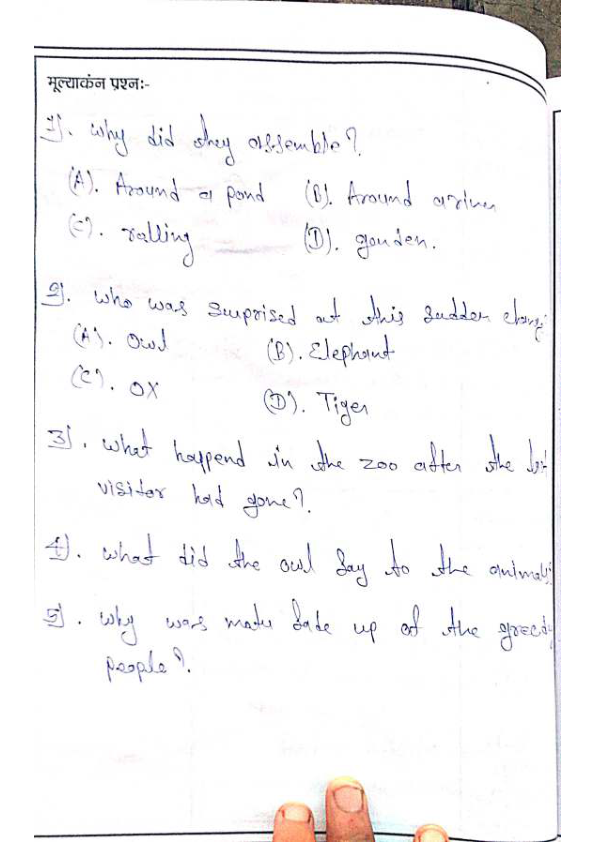 मूल्याकंन प्रश्नः-
1). Why did they assemble?
(A). Around a pond (B). Around a river
(C). ralling (D). gouden.
2). who was surprised at this sudden
(A). Owl (B). Elephant
(C). OX (D). Tiger
3). what happend in the zoo after the
visitor had gone?.
4). what did the owl say to the animals
5). why was up of the greedy
people?.